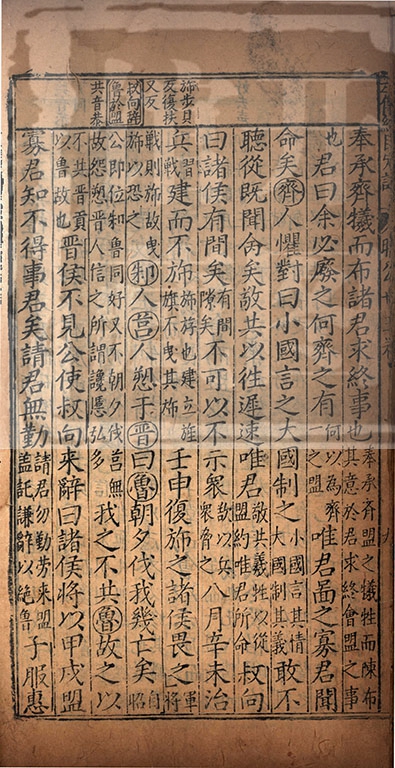 斾步貝
反復扶
又反
共音恭
奉承齊犧而布諸君求終事也奉承齊盟之犧牲而陳布其意於君求終會盟之事
也君曰余必廢之何齊之有何以為齊一之盟唯君圖之寡君聞
命矣齊人懼對曰小國言之大國制之小國言其情大國制其義敢不
聽從既聞命矣敬共以往遲速唯君敬共犧牲以從盟約唯君所命叔向
曰諸侯有間矣有間隙矣不可以不示衆欲以兵衆脅之八月辛未治
兵習戰建而不斾斾旌也建立旌旗不曳其斾壬申復斾之諸侯畏之軍將
戰則斾故曳斾以恐之邾人莒人愬于晉曰魯朝夕伐我幾亡矣自昭
公即位和魯同好又不朝夕伐莒無故怨愬晉人信之所謂讒慝弘多我之不共魯故之以
不共晉貢以魯故也晉侯不見公使叔向來辭曰諸侯將以甲戌盟
寡君知不得事君矣請君無勤請君勿勤勞來盟蓋託謙辭以絕魯子服惠